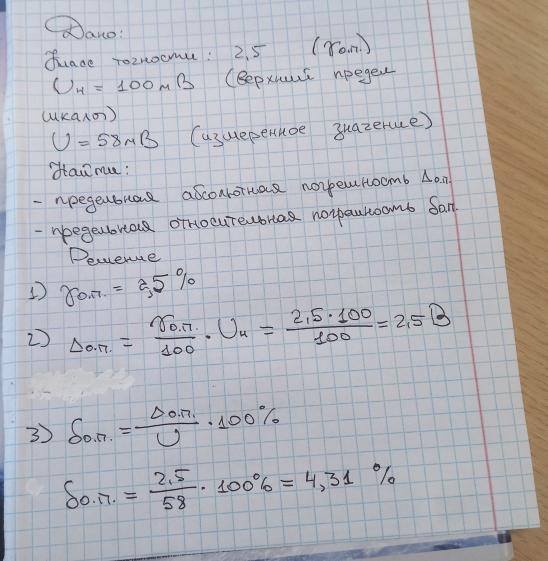 Дано:
Класс точности: 2,5 (γо.п.)
Uн = 100мВ (верхний предел
шкалы)
U = 58мВ (измеренное значение)
Найти:
- предельная абсолютная погрешность Δо.п.
- предельная относительная погрешность δо.п.
Решение
1) γо.п. = 2,5 %
2) Δо.п. = γо.п./100 · Uн = 2,5·100/100 = 2,5 В
3) δо.п. = Δо.п./U · 100%
δо.п. = 2,5/58 · 100% = 4,31 %